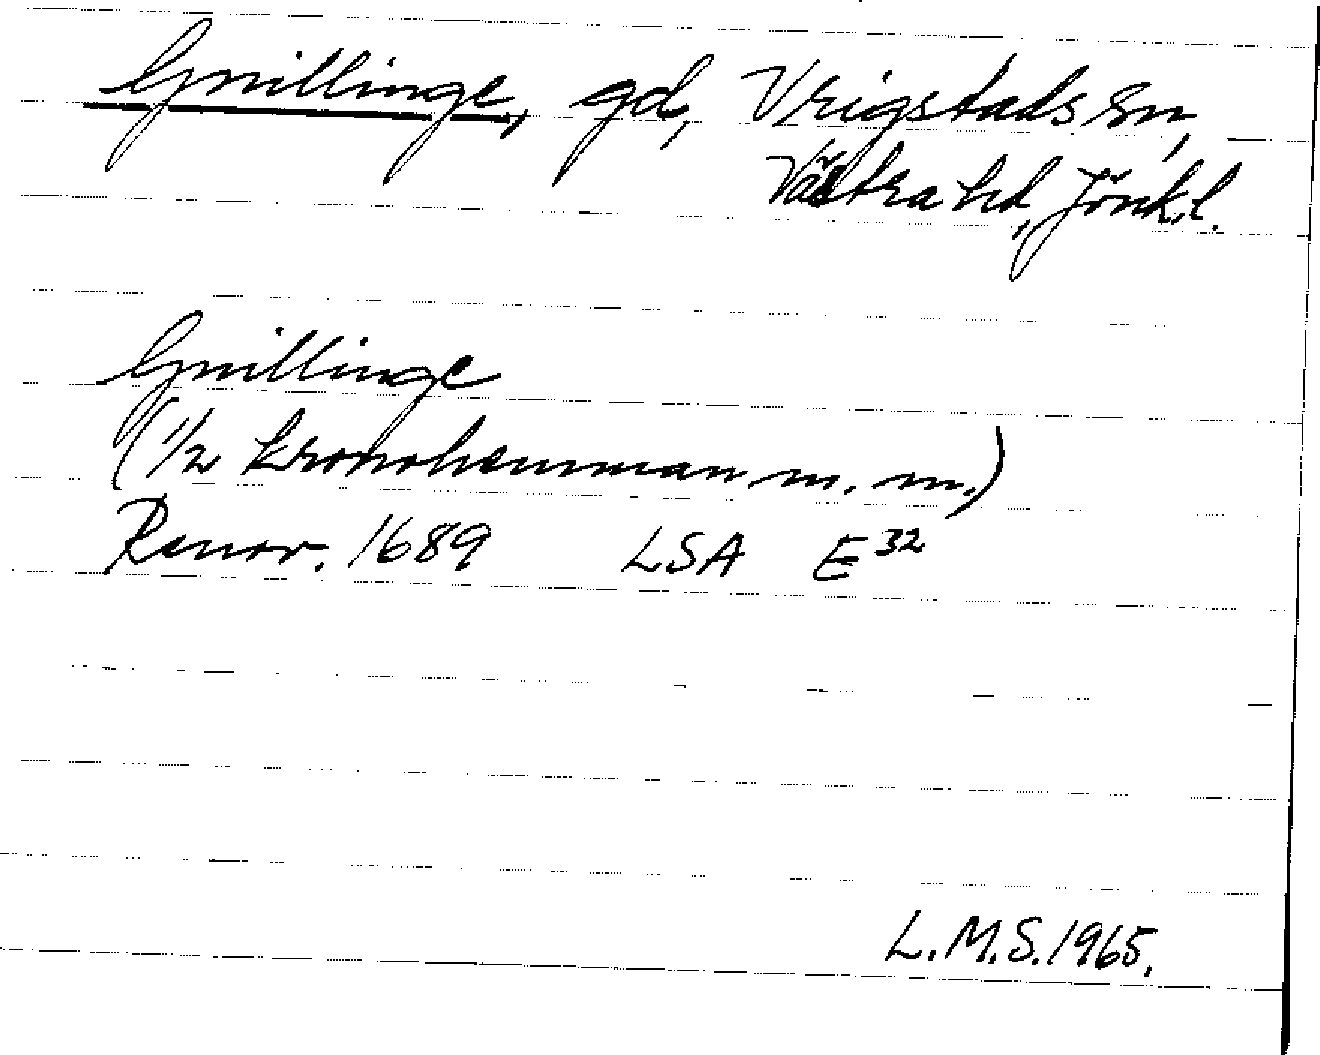 Gnillinge, gd, Vrigstads sn,
Västra hd, Jönk.l.
Gnillinge
(1/2 kronohemman m.m.)
Renov. 1689 LSA E32
L.M.S. 1965.